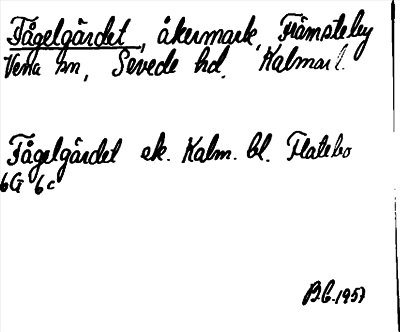 Fågelgärdet, åkermark, Främsteby
Vena sn, Sevede hd, Kalmar l.
Fågelgärdet ek. Kalm. bl. Flatebo
6G 6c
B.G. 1957